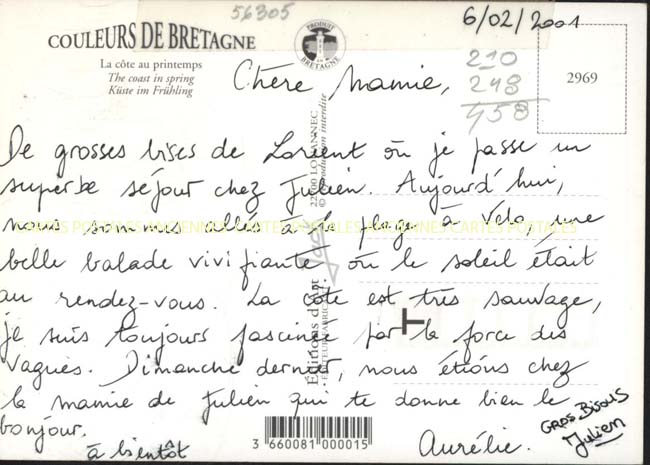 56305
6/02/2001
COULEURS DE BRETAGNE
PRODUIT EN BRETAGNE
La côte au printemps
The coast in spring
Küste im Frühling
210
248
458
2969
Chère Mamie,
De grosses bises de Lorient où je passe un
superbe séjour chez Julien. Aujourd'hui,
nous sommes allés à la plage à vélo, une
CARTES POSTALES ANCIENNES CARTES POSTALES ANCIENNES CARTES POSTALES
belle balade vivifiante où le soleil était
au rendez-vous. La côte est très sauvage,
je suis toujours fascinée par la force des
vagues. Dimanche dernier, nous étions chez
la mamie de Julien qui te donne bien le
bonjour.
à bientôt
Aurélie.
GROS BISOUS
Julien
Editions d'Art
22700 LOUANNEC
© Reproduction interdite
3 660081 000015